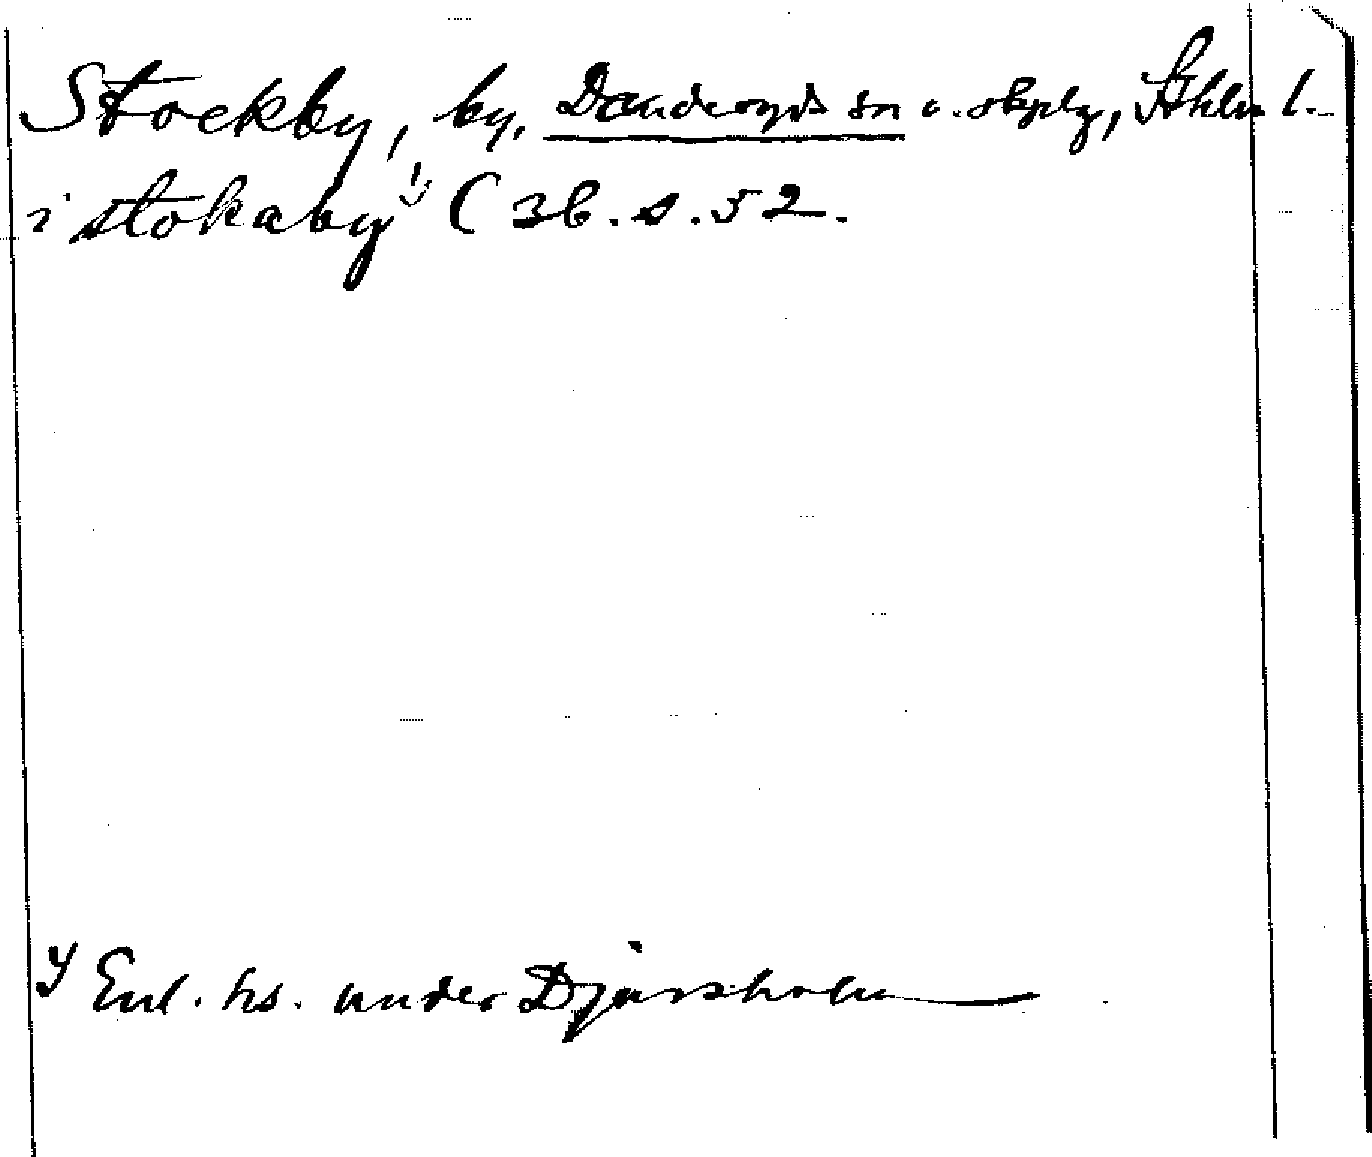 Stockby, by, Danderyds sn o. skplg, Sthlm l.
i stokaby 1) C 36. s. 52.
1) Enl. hs. under Djursholm